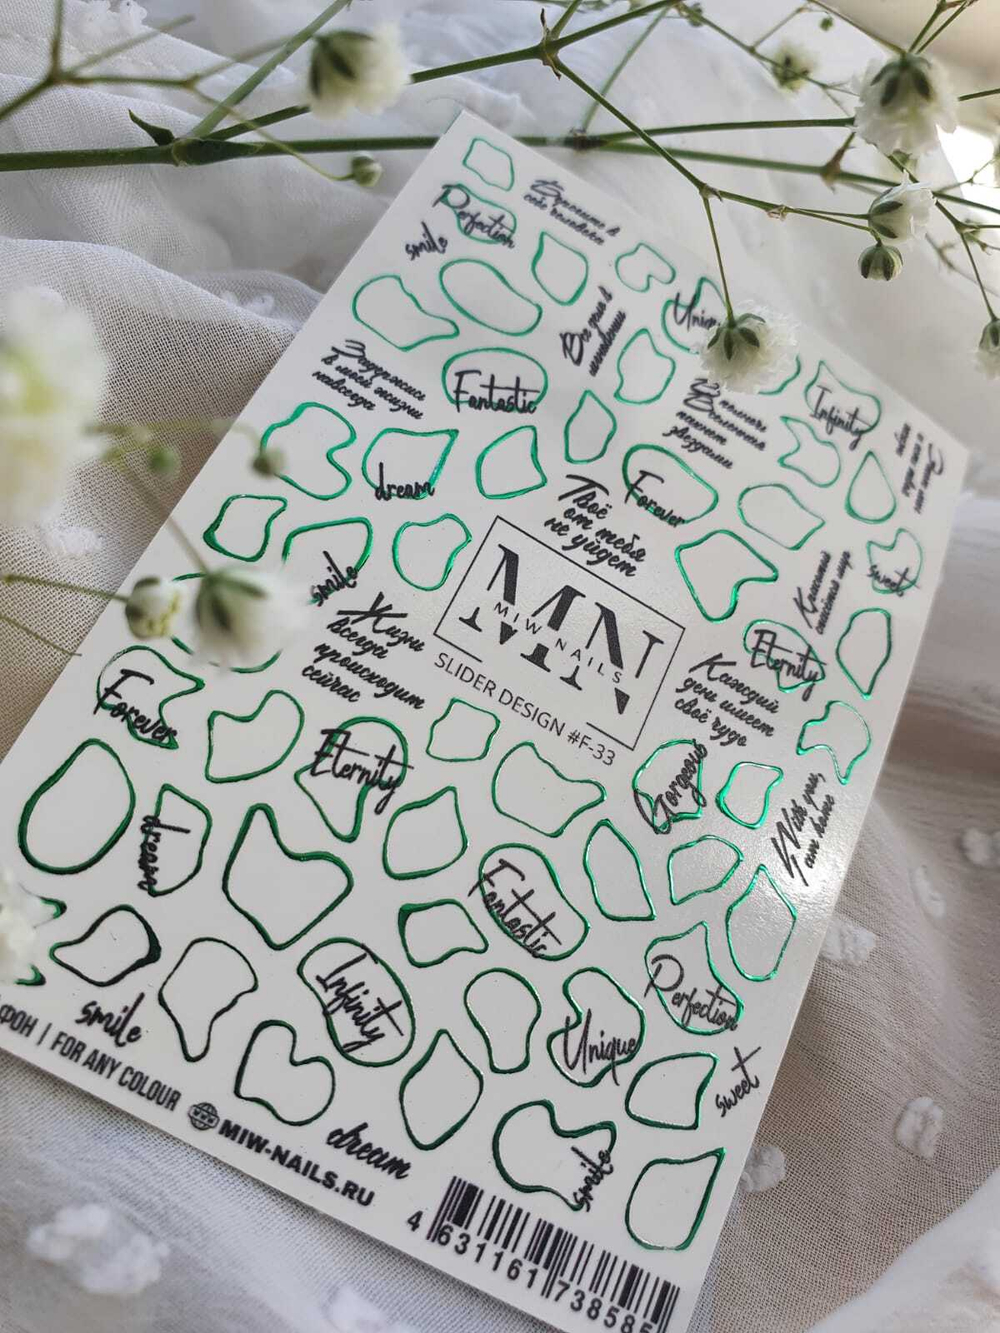 Perfection
smile
Unique
Все уже в
Fantastic
Задержись
в моей жизни
навсегда
Infinity
dream
Forever
Твоё
от тебя
не уйдет
sweet
smile
MN
MIW NAILS
SLIDER DESIGN #F-33
Жизнь
всегда
происходит
сейчас
Eternity
Каждый
день имеет
своё чудо
Forever
Eternity
Gorgeous
dream
With you,
Fantastic
Infinity
Perfection
Unique
smile
sweet
ФОН | FOR ANY COLOUR
MIW-NAILS.RU
dream
smile
4 631161 738585